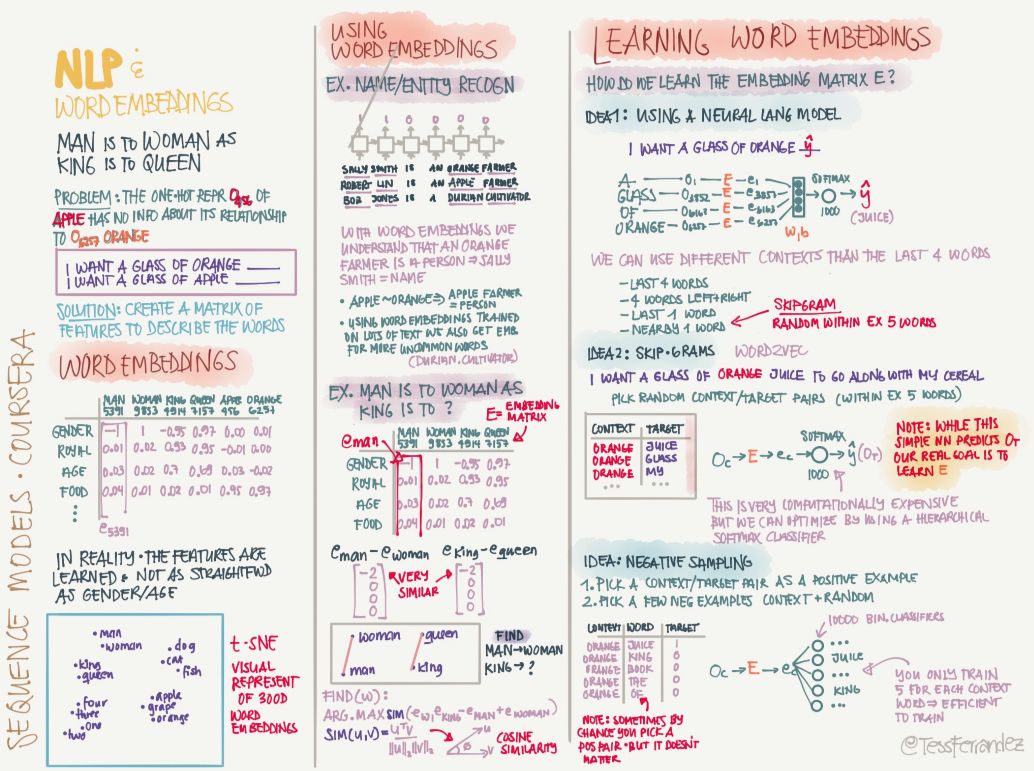 SEQUENCE MODELS · COURSERA
NLP &
WORD EMBEDDINGS
MAN IS TO WOMAN AS
KING IS TO QUEEN
PROBLEM: THE ONE-HOT REPR O456 OF
APPLE HAS NO INFO ABOUT ITS RELATIONSHIP
TO O6257 ORANGE
I WANT A GLASS OF ORANGE ____
I WANT A GLASS OF APPLE ____
SOLUTION: CREATE A MATRIX OF
FEATURES TO DESCRIBE THE WORDS
WORD EMBEDDINGS
MAN WOMAN KING QUEEN APPLE ORANGE
5391 9853 4914 7157 456 6257
GENDER -1 1 -0.95 0.97 0.00 0.01
ROYAL 0.01 0.02 0.93 0.95 -0.01 0.00
AGE 0.03 0.02 0.7 0.69 0.03 -0.02
FOOD 0.04 0.01 0.02 0.01 0.95 0.97
e5391
IN REALITY · THE FEATURES ARE
LEARNED & NOT AS STRAIGHTFWD
AS GENDER/AGE
man
woman
dog
king
cat
queen
fish
four
apple
three
grape
one
orange
two
t-SNE
VISUAL
REPRESENT
OF 300D
WORD
EMBEDDINGS
USING
WORD EMBEDDINGS
EX. NAME/ENTITY RECOGN
1 1 0 0 0 0
SALLY SMITH IS AN ORANGE FARMER
ROBERT LIN IS AN APPLE FARMER
BOB JONES IS A DURIAN CULTIVATOR
WITH WORD EMBEDDINGS WE
UNDERSTAND THAT AN ORANGE
FARMER IS A PERSON ⇒ SALLY
SMITH = NAME
• APPLE ~ ORANGE ⇒ APPLE FARMER
= PERSON
• USING WORD EMBEDDINGS TRAINED
ON LOTS OF TEXT WE ALSO GET EMB.
FOR MORE UNCOMMON WORDS
(DURIAN, CULTIVATOR)
EX. MAN IS TO WOMAN AS
KING IS TO ?
E = EMBEDDING
MATRIX
eman
MAN WOMAN KING QUEEN
5391 9853 4914 7157
GENDER -1 1 -0.95 0.97
ROYAL 0.01 0.02 0.93 0.95
AGE 0.03 0.02 0.7 0.69
FOOD 0.04 0.01 0.02 0.01
eman - ewoman eking - equeen
-2 -2
0 0
0 0
0 0
VERY
SIMILAR
woman queen
man king
FIND
MAN → WOMAN
KING → ?
FIND(W):
ARG.MAX SIM(ew, eKING - eMAN + eWOMAN)
SIM(U,V) = UᵀV / ||U||₂||V||₂
U
φ
V
COSINE
SIMILARITY
LEARNING WORD EMBEDDINGS
HOW DO WE LEARN THE EMBEDDING MATRIX E?
IDEA 1: USING A NEURAL LANG MODEL
I WANT A GLASS OF ORANGE ŷ
A O1 E e1
GLASS O3852 E e3852
OF O6163 E e6163
ORANGE O6257 E e6257
W,b
SOFTMAX
1000
ŷ
(JUICE)
WE CAN USE DIFFERENT CONTEXTS THAN THE LAST 4 WORDS
- LAST 4 WORDS
- 4 WORDS LEFT+RIGHT
- LAST 1 WORD
- NEARBY 1 WORD
SKIPGRAM
RANDOM WITHIN EX 5 WORDS
IDEA 2: SKIP·GRAMS WORD2VEC
I WANT A GLASS OF ORANGE JUICE TO GO ALONG WITH MY CEREAL
PICK RANDOM CONTEXT/TARGET PAIRS (WITHIN EX 5 WORDS)
CONTEXT TARGET
ORANGE JUICE
ORANGE GLASS
ORANGE MY
... ...
Oc → E → ec → ŷ (OT)
SOFTMAX
1000
NOTE: WHILE THIS
SIMPLE NN PREDICTS OT
OUR REAL GOAL IS TO
LEARN E
THIS IS VERY COMPUTATIONALLY EXPENSIVE
BUT WE CAN OPTIMIZE BY USING A HIERARCHICAL
SOFTMAX CLASSIFIER
IDEA: NEGATIVE SAMPLING
1. PICK A CONTEXT/TARGET PAIR AS A POSITIVE EXAMPLE
2. PICK A FEW NEG EXAMPLES CONTEXT + RANDOM
CONTEXT WORD TARGET
ORANGE JUICE 1
ORANGE KING 0
ORANGE BOOK 0
ORANGE THE 0
ORANGE OF 0
NOTE: SOMETIMES BY
CHANCE YOU PICK A
POS PAIR · BUT IT DOESN'T
MATTER
Oc → E → ec
10000 BIN. CLASSIFIERS
...
JUICE
...
KING
...
YOU ONLY TRAIN
5 FOR EACH CONTEXT
WORD ⇒ EFFICIENT
TO TRAIN
@TessFerrandez